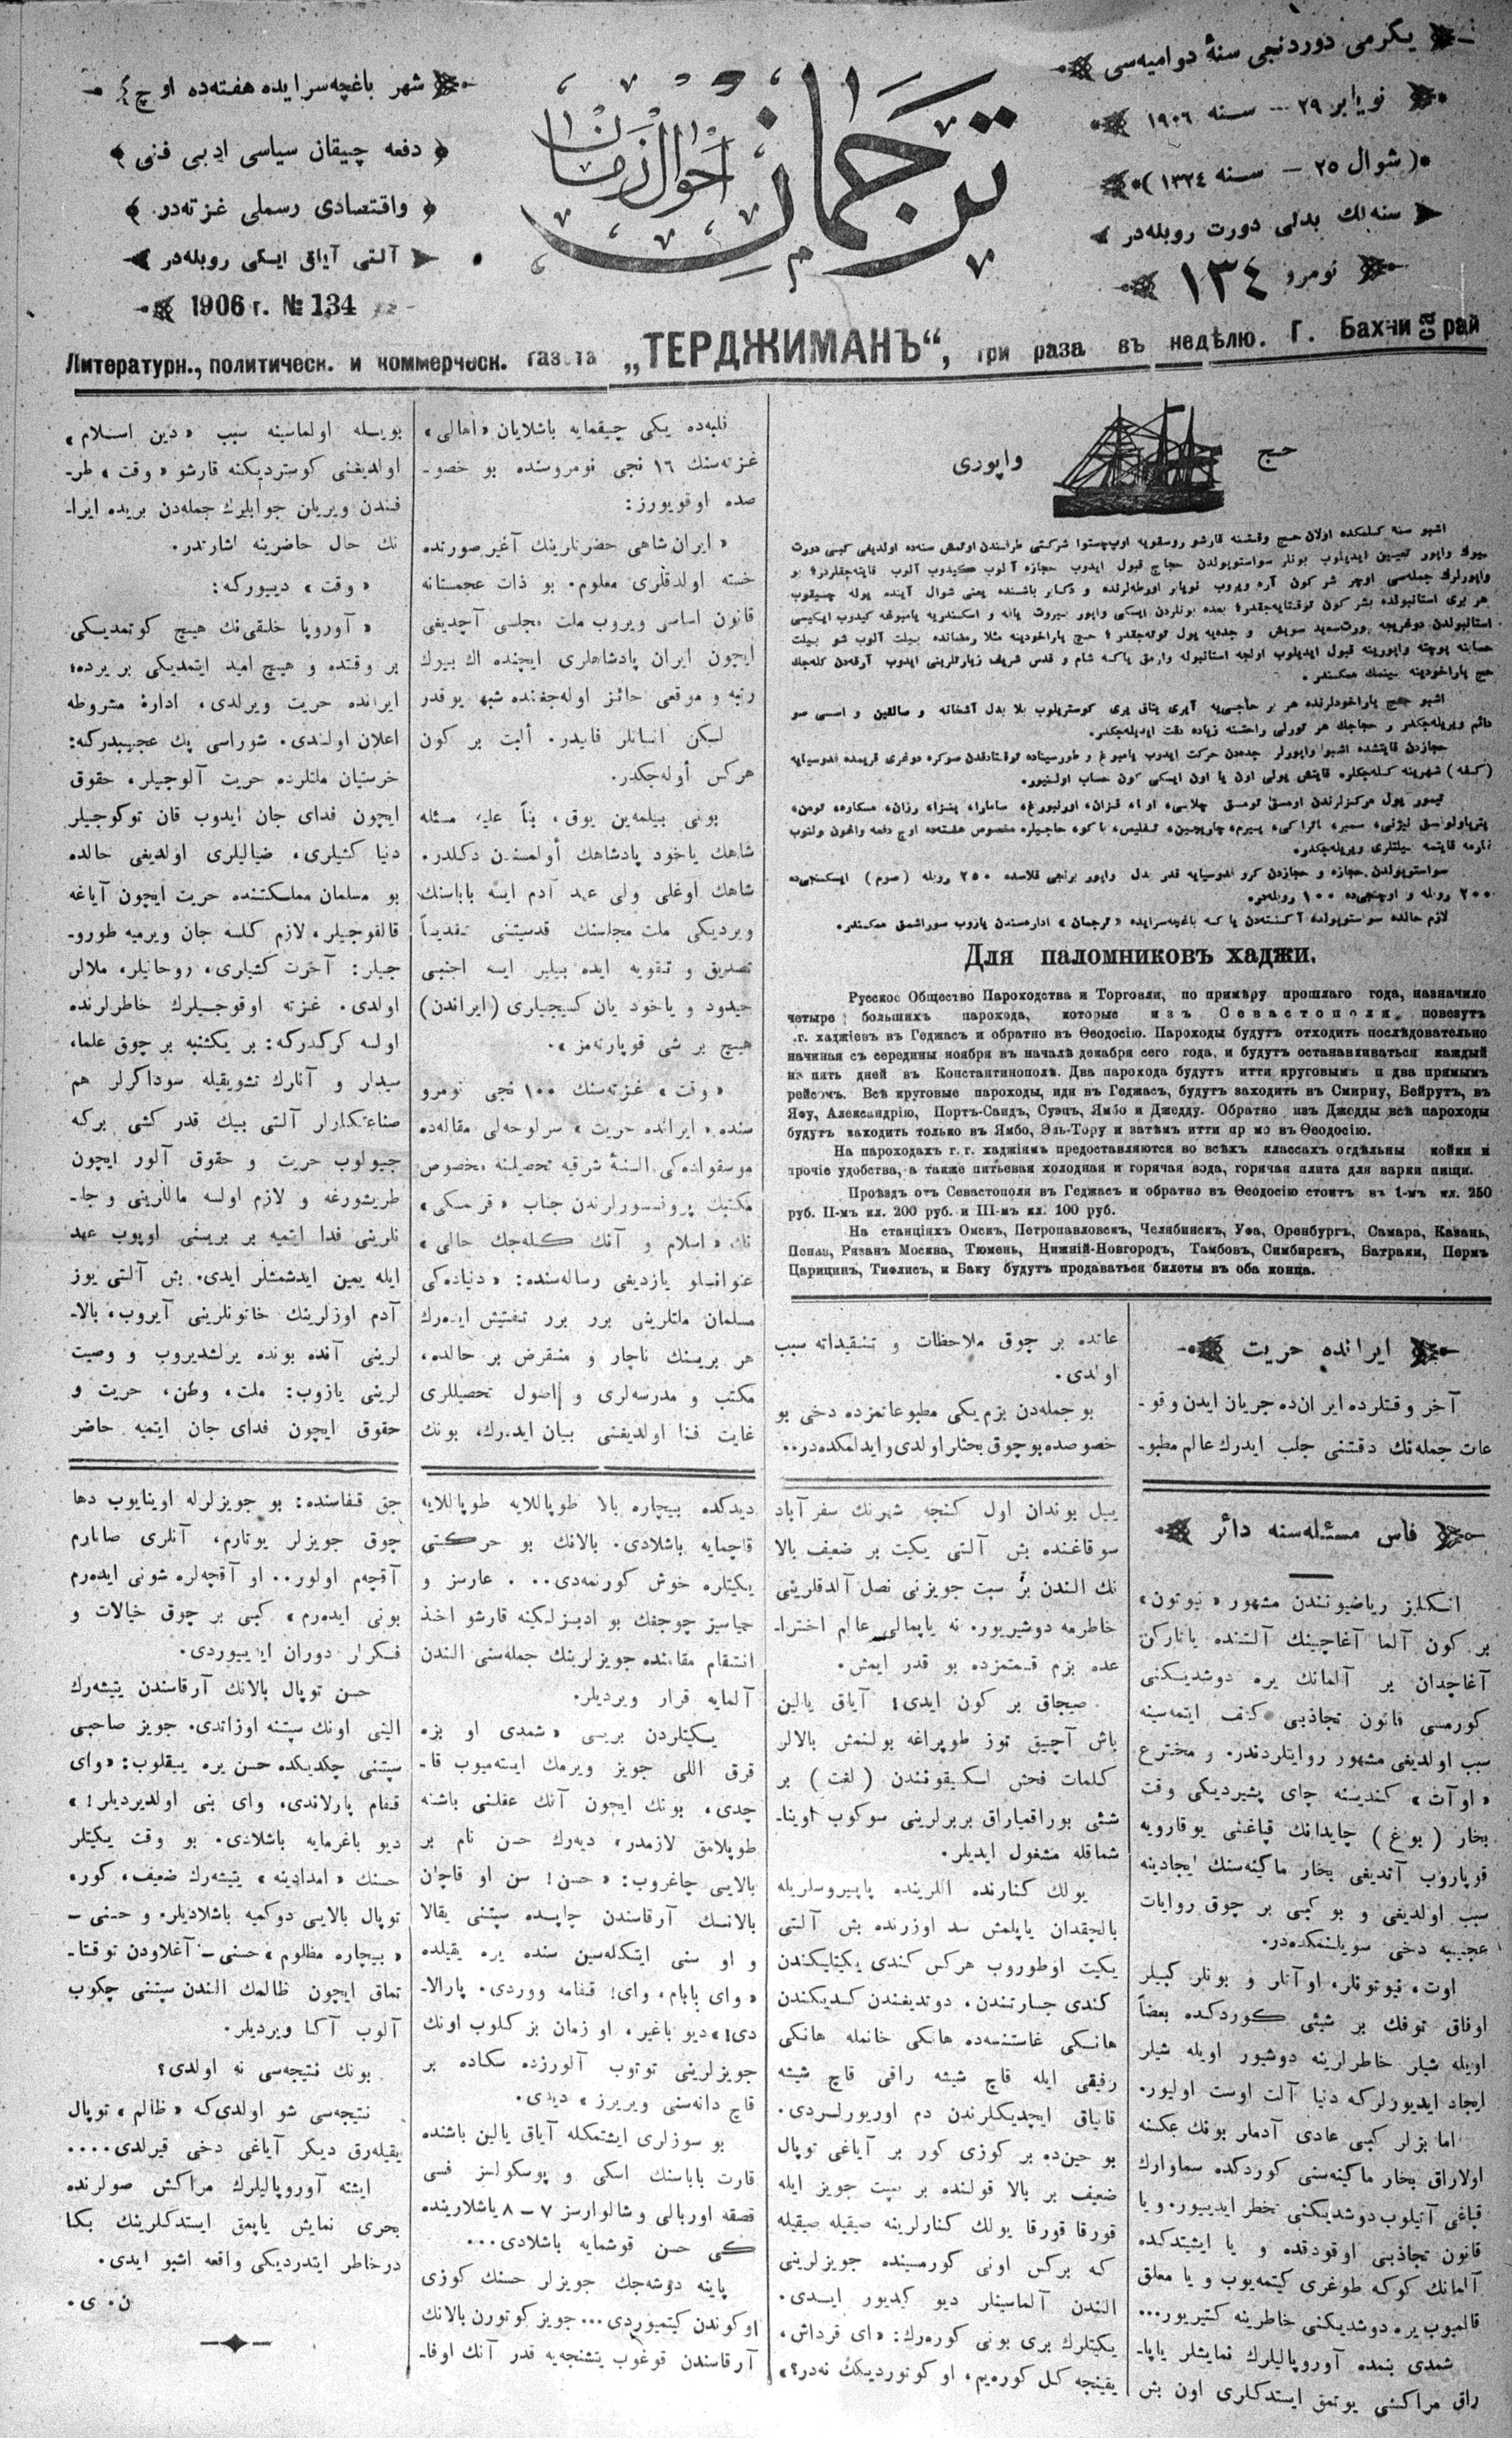 يگرمی دوردنجی سنهٔ دوامیه‌سی
نویابر ٢٩ — سنه ١٩٠٦
(شوال ٢٥ — سنه ١٣٢٤)
سنه‌لك بدلی دورت روبله‌در
نومرو ١٣٤
ترجمان
احوال زمان
شهر باغچه‌سرایده هفته‌ده اوچ
دفعه چیقان سیاسی ادبی فنی
واقتصادی رسملی غزته‌در
آلتی آیلق ایکی روبله‌در
1906 г. № 134
Литературн., политическ. и коммерческ. газета „ТЕРДЖИМАНЪ“, три раза въ недѣлю. Г. Бахчисарай
حج
واپوری
Для паломниковъ хаджи.
Русское Общество Пароходства и Торговли, по примѣру прошлаго года, назначило
четыре большихъ парохода, которые изъ Севастополя повезутъ
г.г. хаджіевъ въ Геджасъ и обратно въ Ѳеодосію. Пароходы будутъ отходить послѣдовательно
начиная съ середины ноября въ началѣ декабря сего года, и будутъ останавливаться каждый
на пять дней въ Константинополѣ. Два парохода будутъ итти круговымъ и два прямымъ
рейсомъ. Всѣ круговые пароходы, идя въ Геджасъ, будутъ заходить въ Смирну, Бейрутъ, въ
Яфу, Александрію, Портъ-Саидъ, Суэцъ, Ямбо и Джедду. Обратно изъ Джедды всѣ пароходы
будутъ заходить только въ Ямбо, Эль-Тору и затѣмъ итти прямо въ Ѳеодосію.
На пароходахъ г.г. хаджіямъ предоставляются во всѣхъ классахъ отдѣльны койки и
прочіе удобства, а также питьевая холодная и горячая вода, горячая плита для варки пищи.
Проѣздъ отъ Севастополя въ Геджасъ и обратно въ Ѳеодосію стоитъ въ I-мъ кл. 250
руб. II-мъ кл. 200 руб. и III-мъ кл. 100 руб.
На станціяхъ Омскъ, Петропавловскъ, Челябинскъ, Уфа, Оренбургъ, Самара, Казань,
Пенза, Рязань Москва, Тюмень, Нижній-Новгородъ, Тамбовъ, Симбирскъ, Батраки, Пермь
Царицинъ, Тифлисъ, и Баку будутъ продаваться билеты въ оба конца.
ایرانده حریت
آخر وقتلرده ایران‌ده جریان ایدن وقو-
عات جمله‌نك دقتنی جلب ایدرك عالم مطبو-
عاتده بر چوق ملاحظات و تنقیداته سبب
اولدی.
بو جمله‌دن بزم‌یکی مطبوعاتمزده دخی بو
خصوصده بوچوق بحثلر اولدی وایدلمکده‌در..
فلبه‌ده یکی چیقمایه باشلایان «اهالی»
غزته‌سنك ١٦ نجی نومروسنده بو خصو-
صده اوقویورز:
«ایران شاهی حضرتلرینك آغیر صورتده
خسته اولدقلری معلوم. بو ذات عجمستانه
قانون اساسی ویروب ملت مجلسی آچدیغی
ایچون ایران پادشاهلری ایچنده اك بیوك
رتبه و موقعی حائز اوله‌جغنده شبهه یوقدر
لیکن انسانلر فانیدر. ألبت بر کون
هرکس أوله‌جکدر.
بونی بیلمه‌ین یوق، بنأ علیه مسئله
شاهك یاخود پادشاهك أولمسندن دکلدر.
شاهك اوغلی ولی عهد آدم ایسه باباسنك
ویردیکی ملت مجلسنك قدسیتنی تقدیماً
تصدیق و تقویه ایده بیلیر ایسه اجنبی
حیدود و یاخود یان کسیجیلری (ایراندن)
هیچ بر شی قوپارتمز».
«وقت» غزته‌سنك ١٠٠ نجی نومرو
سنده «ایرانده حریت» سرلوحه‌لی مقاله‌ده
موسقواده‌کی السنهٔ شرقیه تحصیلنه مخصوص
مکتبك پروفسورلرندن جناب «قریمسکی»
نك «اسلام و آنك کله‌جك حالی»
عنوانیلو یازدیغی رساله‌سنده: «دنیاده‌کی
مسلمان ملتلرینی برر برر تفتیش ایده‌رك
هر بریسنك ناچار و منقرض بر حالده،
مکتب و مدرسه‌لری و اصول تحصیللری
غایت فنا اولدیغنی بیان ایدرك، بونك
بویله اولماسینه سبب «دین اسلام»
اولدیغنی کوستردیکنه قارشو «وقت» طر-
فندن ویریلن جوابلرك جمله‌دن بریده ایرا-
نك حال حاضرینه اشارتدر.
«وقت» دییورکه:
«آوروپا خلقی‌نك هیچ کوتمدیکی
بر وقتده و هیچ امید ایتمدیکی بر یرده،
ایرانده حریت ویرلدی، ادارهٔ مشروطه
اعلان اولندی. شوراسی پك عجیبدرکه:
خرستیان ملتلرنده حریت آلوجیلر، حقوق
ایچون فدای جان ایدوب قان توکوجیلر
دنیا کشیلری، ضیالیلری اولدیغی حالده
بو مسلمان مملکتنده حریت ایچون آیاغه
قالقوجیلر، لازم کلسه جان ویرمیه طورو-
جیلر: آخرت کشیلری، روحانیلر، ملالر
اولدی. غزته اوقوجیلرك خاطرلرنده
اولسه کرکدرکه: بر یکشنبه بر چوق علما،
سیدلر و آنلرك تشویقیله سوداکرلر هم
صناعتکارلر آلتی بیك قدر کشی برکه
جیولوب حریت و حقوق آلور ایچون
طریشورغه و لازم اولسه ماللرینی وجا-
نلرینی فدا ایتمیه بر بریسنی اوپوب عهد
ایله یمین ایدشمشلر ایدی. بش آلتی یوز
آدم اوزلرینك خاتونلرینی آیروب، بالا-
لرینی آنده بونده یرلشدیروب و وصیت
لرینی یازوب: ملت، وطن، حریت و
حقوق ایچون فدای جان ایتمیه حاضر
فاس مسئله‌سنه دائر
انکلیز ریاضیونندن مشهور «نیوتون»
بر کون آلما آغاچینك آلتنده یاتارکن
آغاچدن بر آلمانك یره دوشدیکنی
کورمسی قانون تجاذبی کشف ایتمه‌سینه
سبب اولدیغی مشهور روایتلردندر. و مخترع
«اوآت» کندیسنه چای پشیردیکی وقت
بخار (بوغ) چایدانك قپاغنی یوقارویه
قوپاروب آتدیغی بخار ماکنه‌سنك ایجادینه
سبب اولدیغی و بو کبی بر چوق روایات
عجیبه دخی سویلنمکده‌در.
اوت، نیوتونلر، اوآتلر و بونلر کبیلر
اوفاق توفك بر شیئی کوردکده بعضاً
اویله شیلر خاطرلرینه دوشیور اویله شیلر
ایجاد ایدیورلرکه دنیا آلت اوست اولیور.
اما بزلر کبی عادی آدملر بونك عکسنه
اولاراق بخار ماکینه‌سنی کوردکده سماوارك
قپاغی آتیلوب دوشدیکنی تخطر ایدییور. ویا
قانون تجاذبی اوقودقده و یا ایشیتدکده
آلمانك کوکه طوغری کیتمه‌یوب و یا معلق
قالمیوب یره دوشدیکنی خاطرینه کتیریور...
شمدی بنمده آوروپالیلرك نمایشلر یاپا-
راق مراکشی یوتمق ایستدکلری اون بش
ییل بوندان اول کنجه شهرنك سفرآباد
سوقاغنده بش آلتی یکیت بر ضعیف بالا
نك الندن بر سبت جویزنی نصل آلدقلرینی
خاطرمه دوشیریور. نه یاپمالی عالم اخترا-
عده بزم قسمتمزده بو قدر ایمش.
صیجاق بر کون ایدی! آیاق یالین
باش آچیق توز طوپراغه بولنمش بالالر
کلمات فحش اسکیقوئندن (لغت) بر
شئی بوراقمیاراق بربرلرینی سوکوب اوینا-
شماقله مشغول ایدیلر.
یولك کنارنده اللرینده پاپیروسلریله
بالچقدان یاپلمش سد اوزرنده بش آلتی
یکیت اوطوروب هرکس کندی یکیتلیکندن
کندی جسارتندن، دوندیغندن کسدیکندن
هانکی غاستنسه‌ده هانکی خانمله هانکی
رفیقی ایله قاچ شیشه راقی قاچ شیشه
قانیاق ایچدیکلرندن دم اوریورلردی.
بو حین‌ده بر کوزی کور بر آیاغی توپال
ضعیف بر بالا قولنده بر سبت جویز ایله
قورقا قورقا یولك کنارلرینه صیقیله صیقیله
که برکس اونی کورمسینده جویزلرینی
الندن آلماسینلر دیو کیدیور ایدی.
یکیتلرك بری بونی کوره‌رك: «ای قرداش،
یقینجه کل کوره‌یم، او کوتوردیکك نه‌در؟»
دیدکده بیچاره بالا طوپاللایه طوپاللایه
قاچمایه باشلادی. بالانك بو حرکتی
یکیتلره خوش کورنمه‌دی... عارسز و
حیاسیز چوجغك بو ادبسزلیکنه قارشو اخذ
انتقام مقامنده جویزلرینك جمله‌سنی الندن
آلمایه قرار ویردیلر.
یکیتلردن بریسی «شمدی او بزه
قرق اللی جویز ویرمك ایسته‌میوب قا-
چدی، بونك ایچون آنك عقلنی باشنه
طوپلامق لازمدر، دیه‌رك حسن نام بر
بالایی چاغروب: «حسن! سن او قاچان
بالانك آرقاسندن چاپده سپتنی یقالا
و او سنی ایتکله‌سین سنده یره یقیلده
«وای بابام، وای! قفامه ووردی. پارالا-
دی!» دیو باغیر، او زمان بز کلوب اونك
جویزلرینی توتوب آلورزده سکاده بر
قاچ دانه‌سنی ویریرز» دیدی.
بو سوزلری ایشتمکله آیاق یالین باشنده
قارت باباسنك اسکی و پوسکولسز فسی
قصقه اوربالی وشالوارسز ٧ — ٨ یاشلارینده
کی حسن قوشمایه باشلادی...
پاینه دوشه‌جك جویزلر حسنك کوزی
اوکوندن کیتمیوردی... جویز کوتورن بالانك
آرقاسندن قوغوب یتشنجه‌یه قدر آنك اوفا-
جق قفاسنده: بو جویزلرله اوینایوب دها
چوق جویزلر یوتارم، آنلری صاتارم
آقچه‌م اولور.. او آقچه‌لره شونی ایده‌رم
بونی ایده‌رم» کبی بر چوق خیالات و
فکرلر دوران ایدییوردی.
حسن توپال بالانك آرقاسندن یتیشه‌رك
الینی اونك سپتنه اوزاتدی. جویز صاحبی
سپتنی چکدیکده حسن یره ییقلوب: «وای
قفام پارلاندی، وای بنی اولدیردیلر!»
دیو باغرمایه باشلادی. بو وقت یکیتلر
حسنك «امدادینه» یتیشه‌رك ضعیف، کور،
توپال بالایی دوکمیه باشلادیلر. و حسنی —
«بیچاره مظلوم» حسنی — آغلاودن توقتا-
تماق ایچون ظالمك الندن سپتنی چکوب
آلوب آکا ویردیلر.
بونك نتیجه‌سی نه اولدی؟
نتیجه‌سی شو اولدی‌که «ظالم» توپال
یقیله‌رق دیکر آیاغی دخی قیرلدی....
ایشته آوروپالیلرك مراکش صولرنده
بحری نمایش یاپمق ایستدکلرینك بکا
درخاطر ایتدردیکی واقعه اشبو ایدی.
ن. ی.